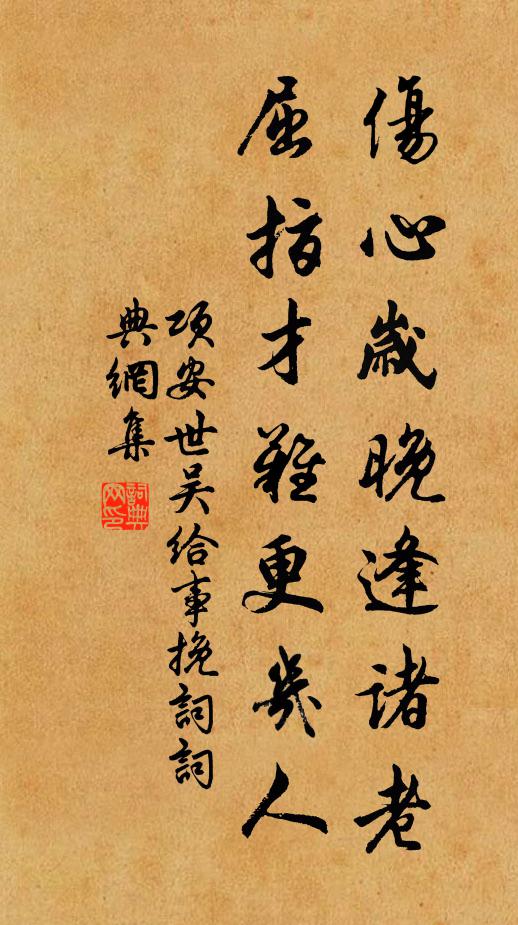 傷心歲晚逢諸老
屈指才難更幾人
項安世吳給事挽詞詞
典網集
詞典
网印